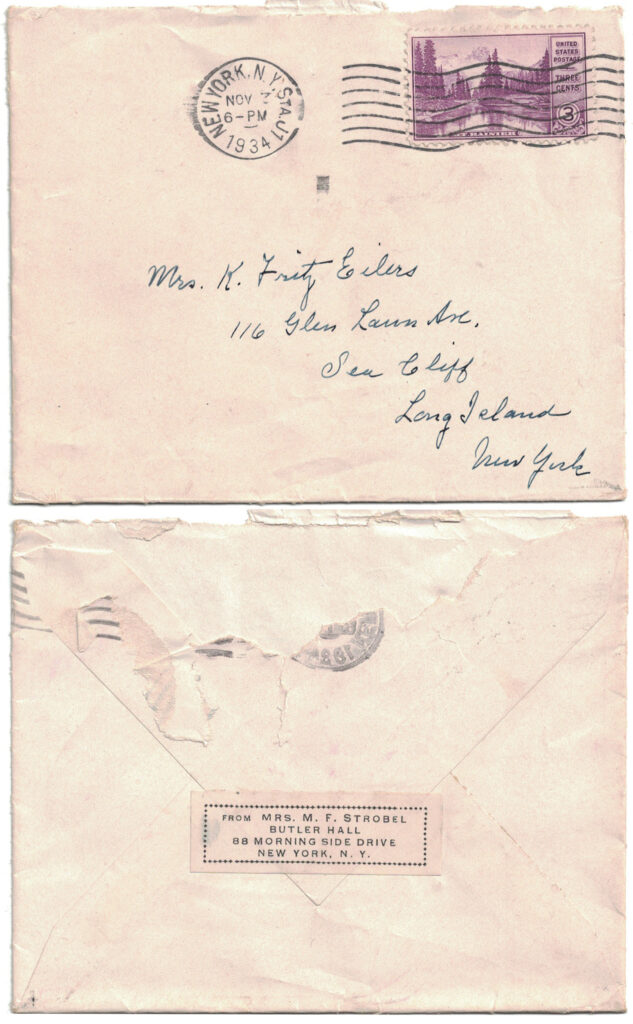 NEW YORK, N.Y. STA. J1
NOV 3
6-PM
1934
UNITED
STATES
POSTAGE
THREE
CENTS
3
MT RAINIER
Mrs. K. Fritz Eilers
116 Glen Lawn Ave.
Sea Cliff
Long Island
New York
FROM MRS. M. F. STROBEL
BUTLER HALL
88 MORNING SIDE DRIVE
NEW YORK, N. Y.